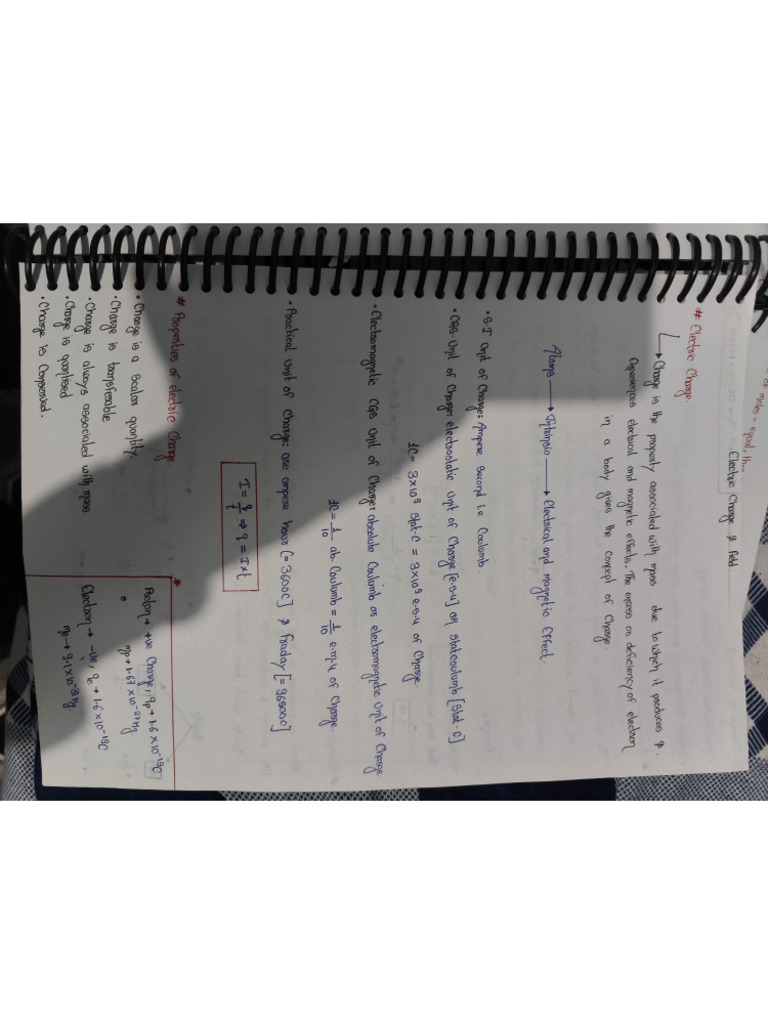 of moles = equal, then
Electric Charge & field
# Electric Charge.
→ Charge is the property associated with mass due to which it produces &
experiences electrical and magnetic effects. The excess or deficiency of electron
in a body gives the concept of charge
Atoms → Intrinsic → Electrical and magnetic effect
• S.I Unit of Charge: Ampere second i.e Coulomb.
• CGS Unit of Charge: electrostatic Unit of Charge [e.s.u] or statcoulomb [stat-C]
1C = 3×10⁹ stat-C = 3×10⁹ e.s.u of Charge
• Electromagnetic CGS Unit of Charge: absolute Coulumb or electromagnetic Unit of Charge
1C = 1/10 ab. Coulumb = 1/10 e.m.u of Charge
• Practical Unit of Charge: one ampere hour (= 3600C] & Faraday [= 96500C]
I = q/t ⇒ q = I×t
# Properties of electric Charge
• Charge is a scalar quantity.
• Charge is transferable
• Charge is always associated with mass
• Charge is quantised
• Charge is Conserved.
*
Proton → +ve Charge, qp → 1.6×10⁻¹⁹C
mp → 1.67×10⁻²⁷kg
Electron → -ve, qe → 1.6×10⁻¹⁹C
→ 9.1×10⁻³¹kg